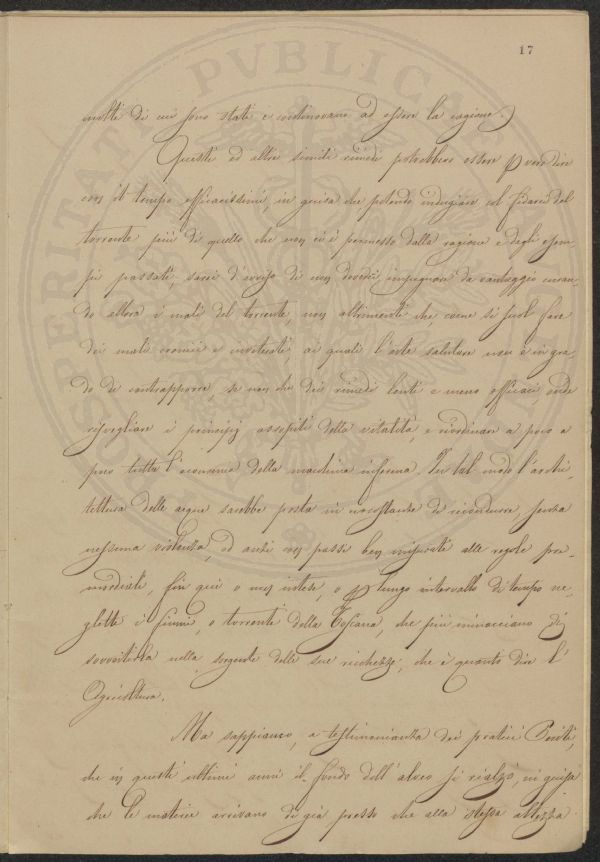 17
molti di cui sono stati e continovano ad essere la cagione.)
Questi ed altri simili rimedi potrebbero essere p vero dire
con il tempo efficacissimi, in guisa che potendo indugiare col fidarci del
torrente più di quello che non ci è permesso dalla ragione e dagli esem-
pii passati, sarei d'avviso di non doverci impegnare da vantaggio curan-
do allora i mali del torrente, non altrimenti che come si suol fare
dei mali cronici e inveterati ai quali l'arte salutare non è in gra-
do di contrapporre, se non che dei rimedi lenti e meno efficaci onde
risvegliare i principij assopiti della vitalità, e riordinare a poco a
poco tutta l'economia della macchina inferma. In tal modo l'archi-
tettura delle acque sarebbe posta in circostanze di ricondurre, senza
nessuna violenza, ed anzi con passi ben misurati alle regole pri-
mordiali, fin qui o non intese, o p lungo intervallo di tempo ne-
glette i fiumi, o torrenti della Toscana, che più minacciano di
sovvertirla nella sorgente delle sue ricchezze, che è quanto dire l'
Agricoltura.
Ma sappiamo, a testimonianza dei pratici Periti,
che in questi ultimi anni il fondo dell'alveo si rialzò, in guisa
che le materie arrivano di già presso che alla stessa altezza
PVBLICAE